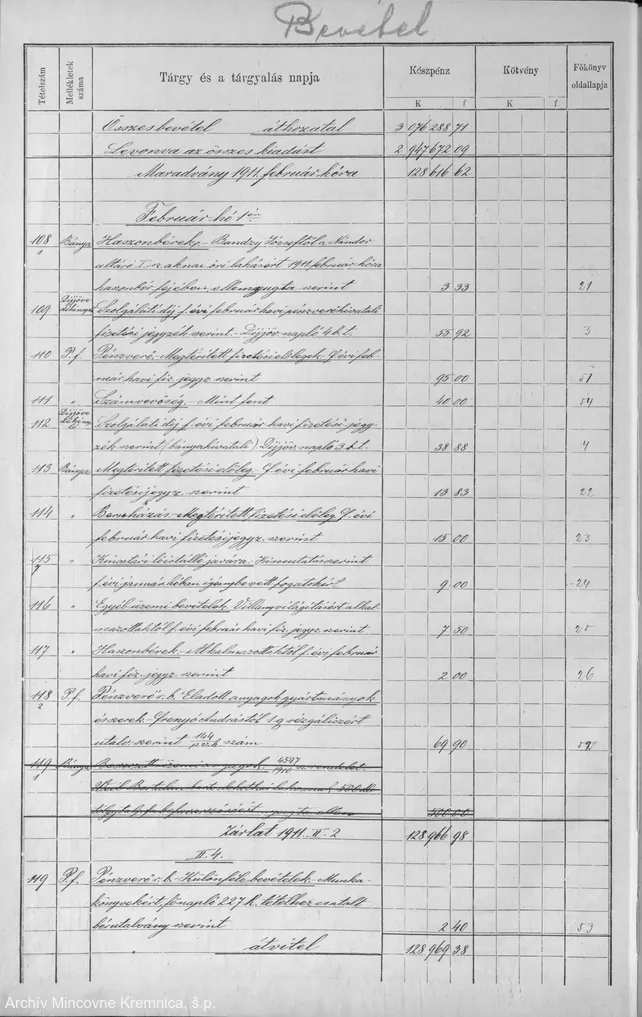 Bevétel
Tételszám
Mellékletek száma
Tárgy és a tárgyalás napja
Készpénz
Kötvény
Főkönyv oldallapja
K f K f
Összes bevétel áthozatal 3 076 288 71
Levonva az összes kiadást 2 947 672 09
Maradvány 1911. február hóra 128 616 62
Február hó 1én
108 1 Bánya Haszonbérek. Bandzy Józseftől a Nándor
altárói aknai őri lakásért 1911 február hóra
haszonbér fejében, ellennyugta szerint 3 33 21
109 Szolgálati díj f. évi február havi pénzverőhivatali
fizetési jegyzék szerint. Díjjöv. napló 4 b.t. 55 92 3
110 P.f. Pénzverő. Megtérített fizetési előlegek f. évi feb-
ruár havi fiz. jegyz. szerint 95 00 51
111 " Számvevőség. Mint fent 40 00 54
112 Szolgálati díj f. évi február havi fizetési jegy-
zék szerint (bányahivatali) Díjjöv. napló 3 b.t. 38 88 4
113 Bánya Megtérített fizetési előleg f. évi február havi
fizetési jegyz. szerint 13 83 22
114 " Beruházás. Megtérített fizetési előleg f. évi
február havi fizetési jegyz. szerint 15 00 23
115 7 " Kincstári lóistálló javára. Kimutatás szerint
f. évi január hóban igénybevett fogatokért 9 00 24
116 " Egyéb üzemi bevételek. Villanyvilágításért alkal-
mazottaktól f. évi február havi fiz. jegyz. szerint 7 50 25
117 " Haszonbérek. Alkalmazottaktól f. évi február
havi fiz. jegyz. szerint 2 00 26
118 2 P.f. Pénzverő r. b. Eladott anyagok gyártmányok
és szerek. 1 q rézgálicért
utalv. szerint 144 szám 69 90 52
119 1 Bánya 4597 1910 sz. rendelet
500 00
Zárlat 1911. II. 2 128 966 98
II. 4.
119 P.f. Pénzverő r. b. Különféle bevételek. Munka-
könyvekért főnapló 227 k. tételhez csatolt
bérutalvány szerint 2 40 53
átvitel 128 969 38
Archív Mincovne Kremnica, š.p.